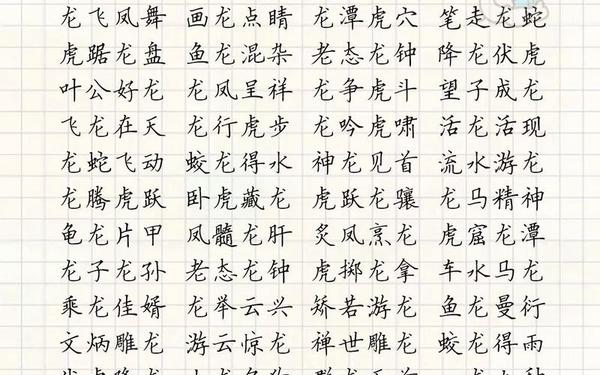 龙飞凤舞 画龙点睛 龙潭虎穴 笔走龙蛇
虎踞龙盘 鱼龙混杂 老态龙钟 降龙伏虎
叶公好龙 龙凤呈祥 龙争虎斗 望子成龙
飞龙在天 龙行虎步 龙吟虎啸 活龙活现
龙蛇飞动 蛟龙得水 神龙见首 流水游龙
龙腾虎跃 卧虎藏龙 虎跃龙骧 龙马精神
龟龙片甲 凤髓龙肝 炙凤烹龙 虎窟龙潭
龙子龙孙 老态龙钟 虎掷龙拿 车水马龙
乘龙佳婿 龙举云兴 矫若游龙 鱼龙曼衍
文炳雕龙 游云惊龙 禅世雕龙 蛟龙得雨